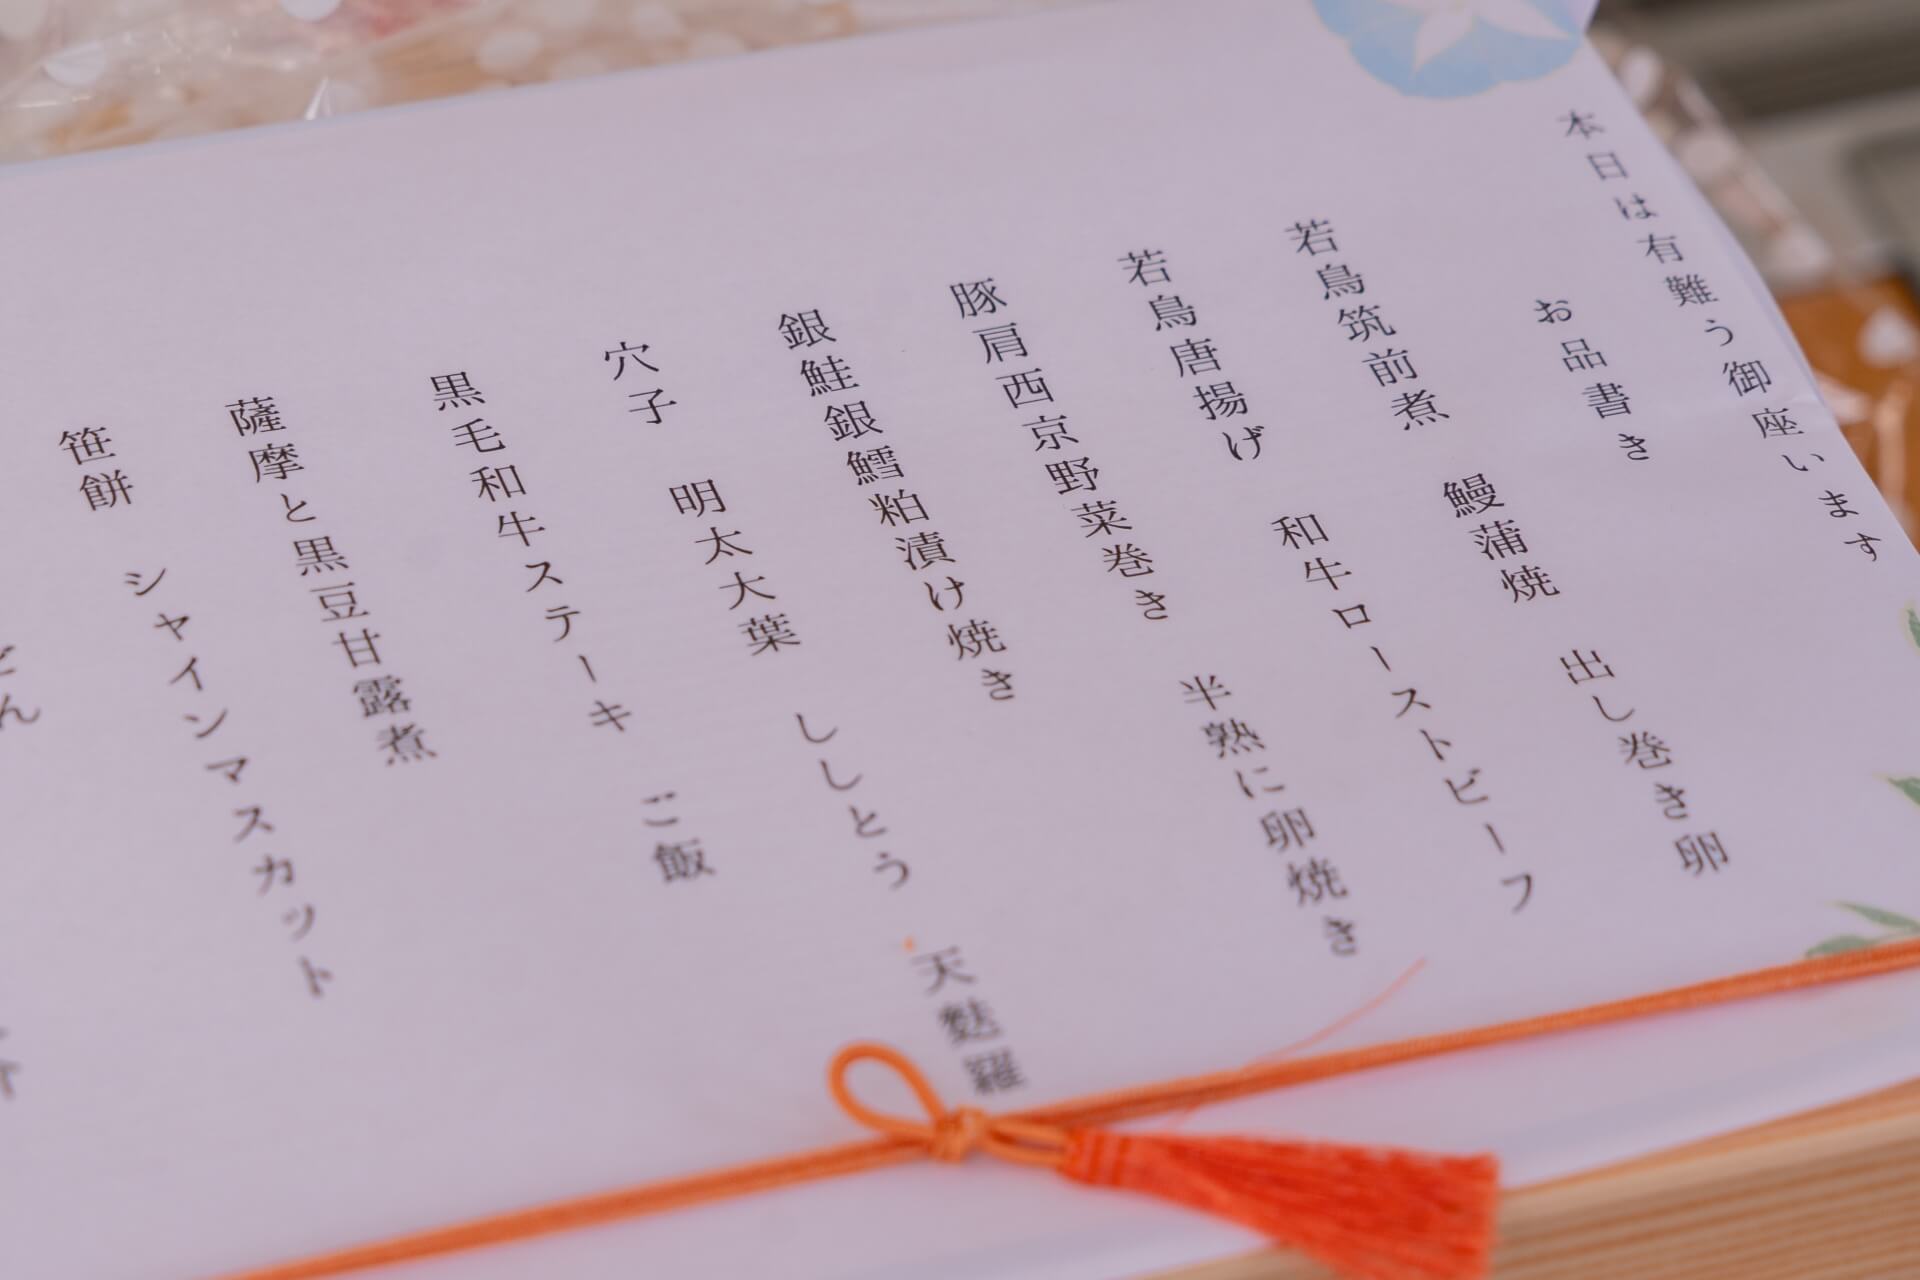 本日は有難う御座います
お品書き
若鳥筑前煮　鰻蒲焼　出し巻き卵
若鳥唐揚げ　和牛ローストビーフ
豚肩西京野菜巻き　半熟に卵焼き
銀鮭銀鱈粕漬け焼き
穴子　明太大葉　ししとう　天麩羅
黒毛和牛ステーキ　ご飯
薩摩と黒豆甘露煮
笹餅　シャインマスカット